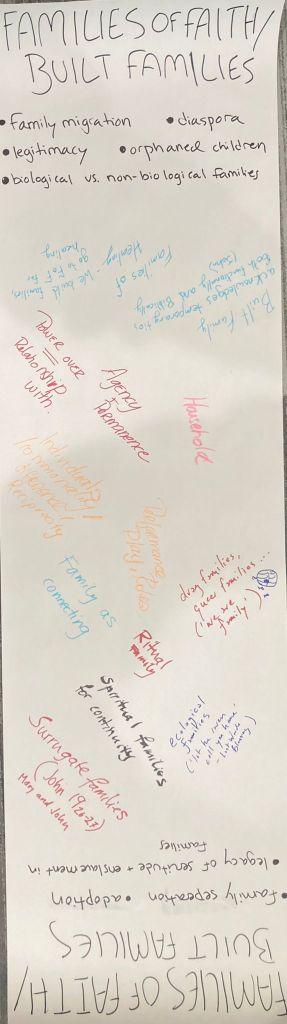 FAMILIES OF FAITH/
BUILT FAMILIES
• family migration • diaspora
• legitimacy • orphaned children
• biological vs. non-biological families
Built family
acknowledges temporary ties
both functionally and Biblically
Families of
Healing -
We build families,
go to FoF for
healing
Power over
=
Relationship
with.
Agency
+
Permanence
Household
Individuality/
Commonality/
difference/
reciprocity
Performance
Play, roles
drag families,
queer families...
("we are
family")
Family as
connecting
Ritual
Family
Spiritual families
for continuity
ecological
families
Surrogate families
(John 19:26-27)
Mary and John
FAMILIES OF FAITH/
BUILT FAMILIES
• family seperation • adoption
• legacy of servitude + enslavement in
families